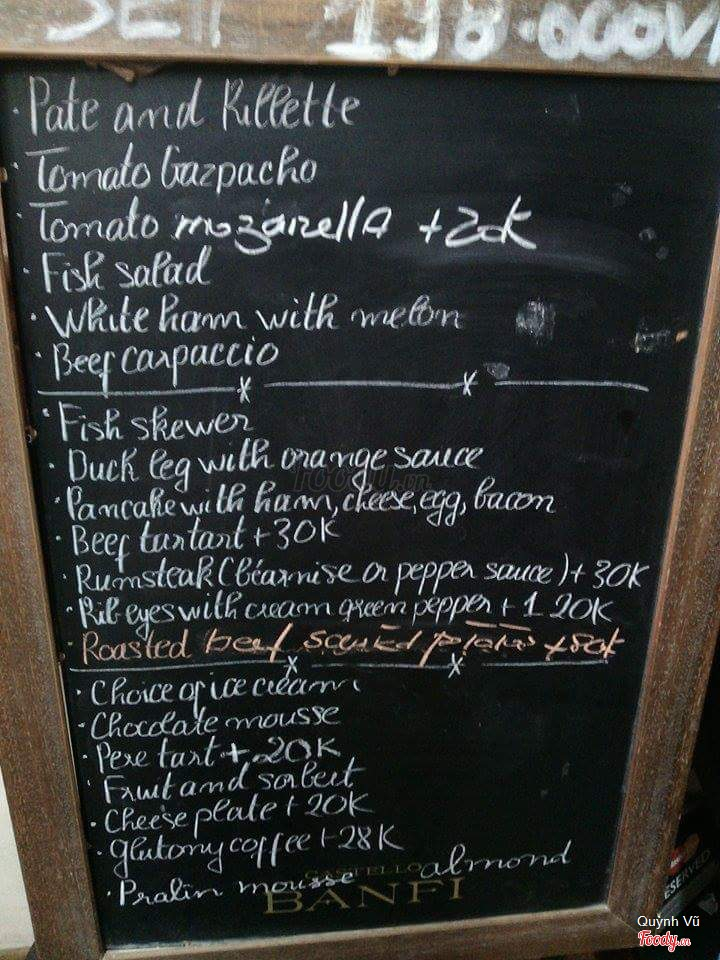 SET 198.000V
Pate and Rillette
Tomato Gazpacho
Tomato mozarella +20K
Fish salad
White ham with melon
Beef carpaccio
Fish skewer
Duck leg with orange sauce
Pancake with ham, cheese, egg, bacon
Beef tartart +30K
Rumsteak (béarnise or pepper sauce) + 30K
Rib eyes with cream green pepper + 120K
Roasted beef +80K
Choice of ice cream
Chocolate mousse
Pere tart + 20K
Fruit and sorbert
Cheese plate + 20K
glutony coffee + 28K
Pralin mousse almond
CASTELLO
BANFI
RESERVED
Quỳnh Vũ
Foody.vn